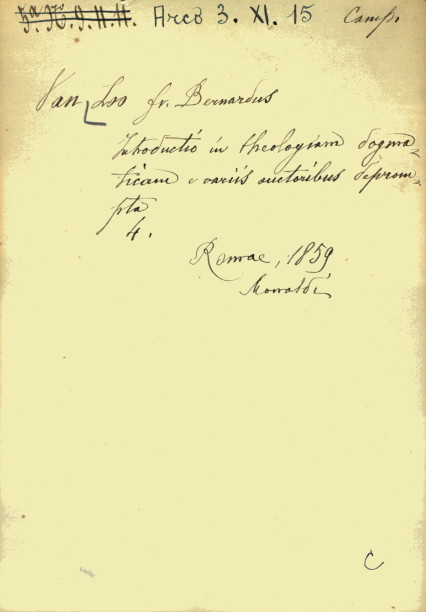 5ª K. 9. II. 11. Arco 3. XI. 15 Camp.
Van Loo fr. Bernardus
Introductio in theologiam dogma-
ticam e variis auctoribus deprom-
pta
4.
Romae, 1859
Monaldi
C